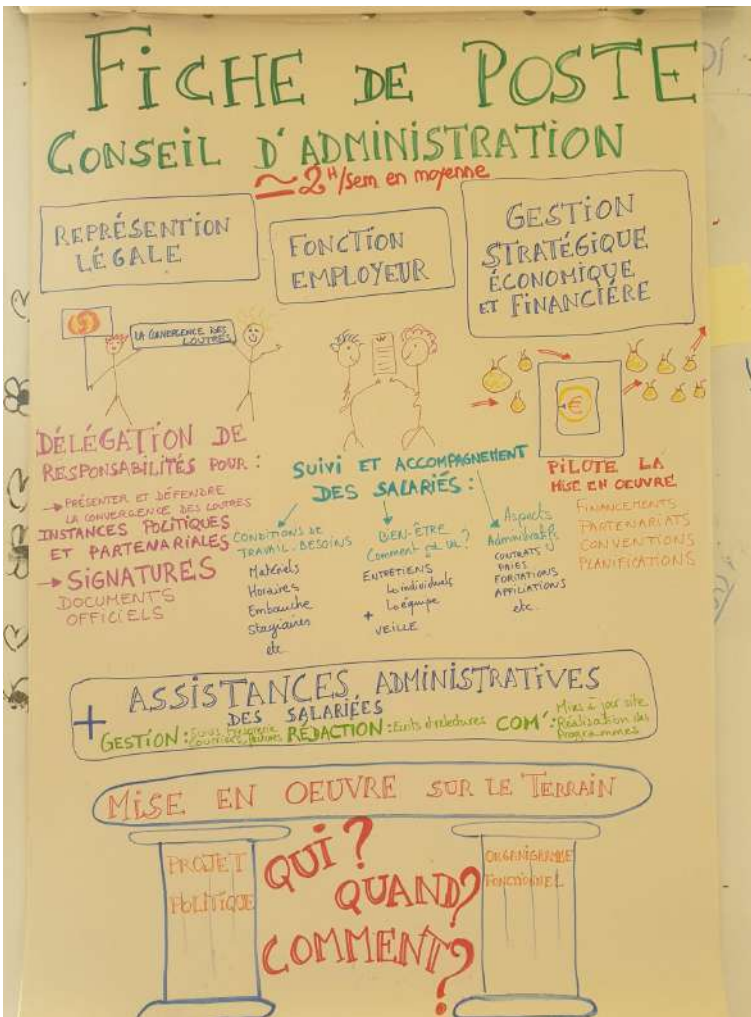 FICHE DE POSTE
CONSEIL D'ADMINISTRATION
~ 2H/sem en moyenne
REPRÉSENTION
LÉGALE
FONCTION
EMPLOYEUR
GESTION
STRATÉGIQUE
ÉCONOMIQUE
ET FINANCIÉRE
LA CONVERGENCE DES
LOUTRES
€
DÉLÉGATION DE
RESPONSABILITÉS POUR :
→ PRÉSENTER ET DÉFENDRE
LA CONVERGENCE DES LOUTRES
INSTANCES POLITIQUES
ET PARTENARIALES
→ SIGNATURES
DOCUMENTS
OFFICIELS
SUIVI ET ACCOMPAGNEMENT
DES SALARIÉS :
CONDITIONS DE
TRAVAIL. BESOINS
Matériels
Horaires
Embauche
Stagiaires
etc
BIEN-ÊTRE
Comment ça va ?
ENTRETIENS
↳ individuels
↳ équipe
+
VEILLE
Aspects
Administratifs
CONTRATS
PAIES
FORMATIONS
AFFILIATIONS
etc.
PILOTE LA
MISE EN OEUVRE
FINANCEMENTS
PARTENARIATS
CONVENTIONS
PLANIFICATIONS
+ ASSISTANCES ADMINISTRATIVES
DES SALARIÉES
GESTION : Suivis trésorerie
RÉDACTION : Ecrits et relectures
COM' : Mises à jour site
Réalisation des
Programmes
MISE EN OEUVRE SUR LE TERRAIN
PROJET
POLITIQUE
QUI ?
QUAND ?
COMMENT ?
ORGANIGRAMME
FONCTIONNEL